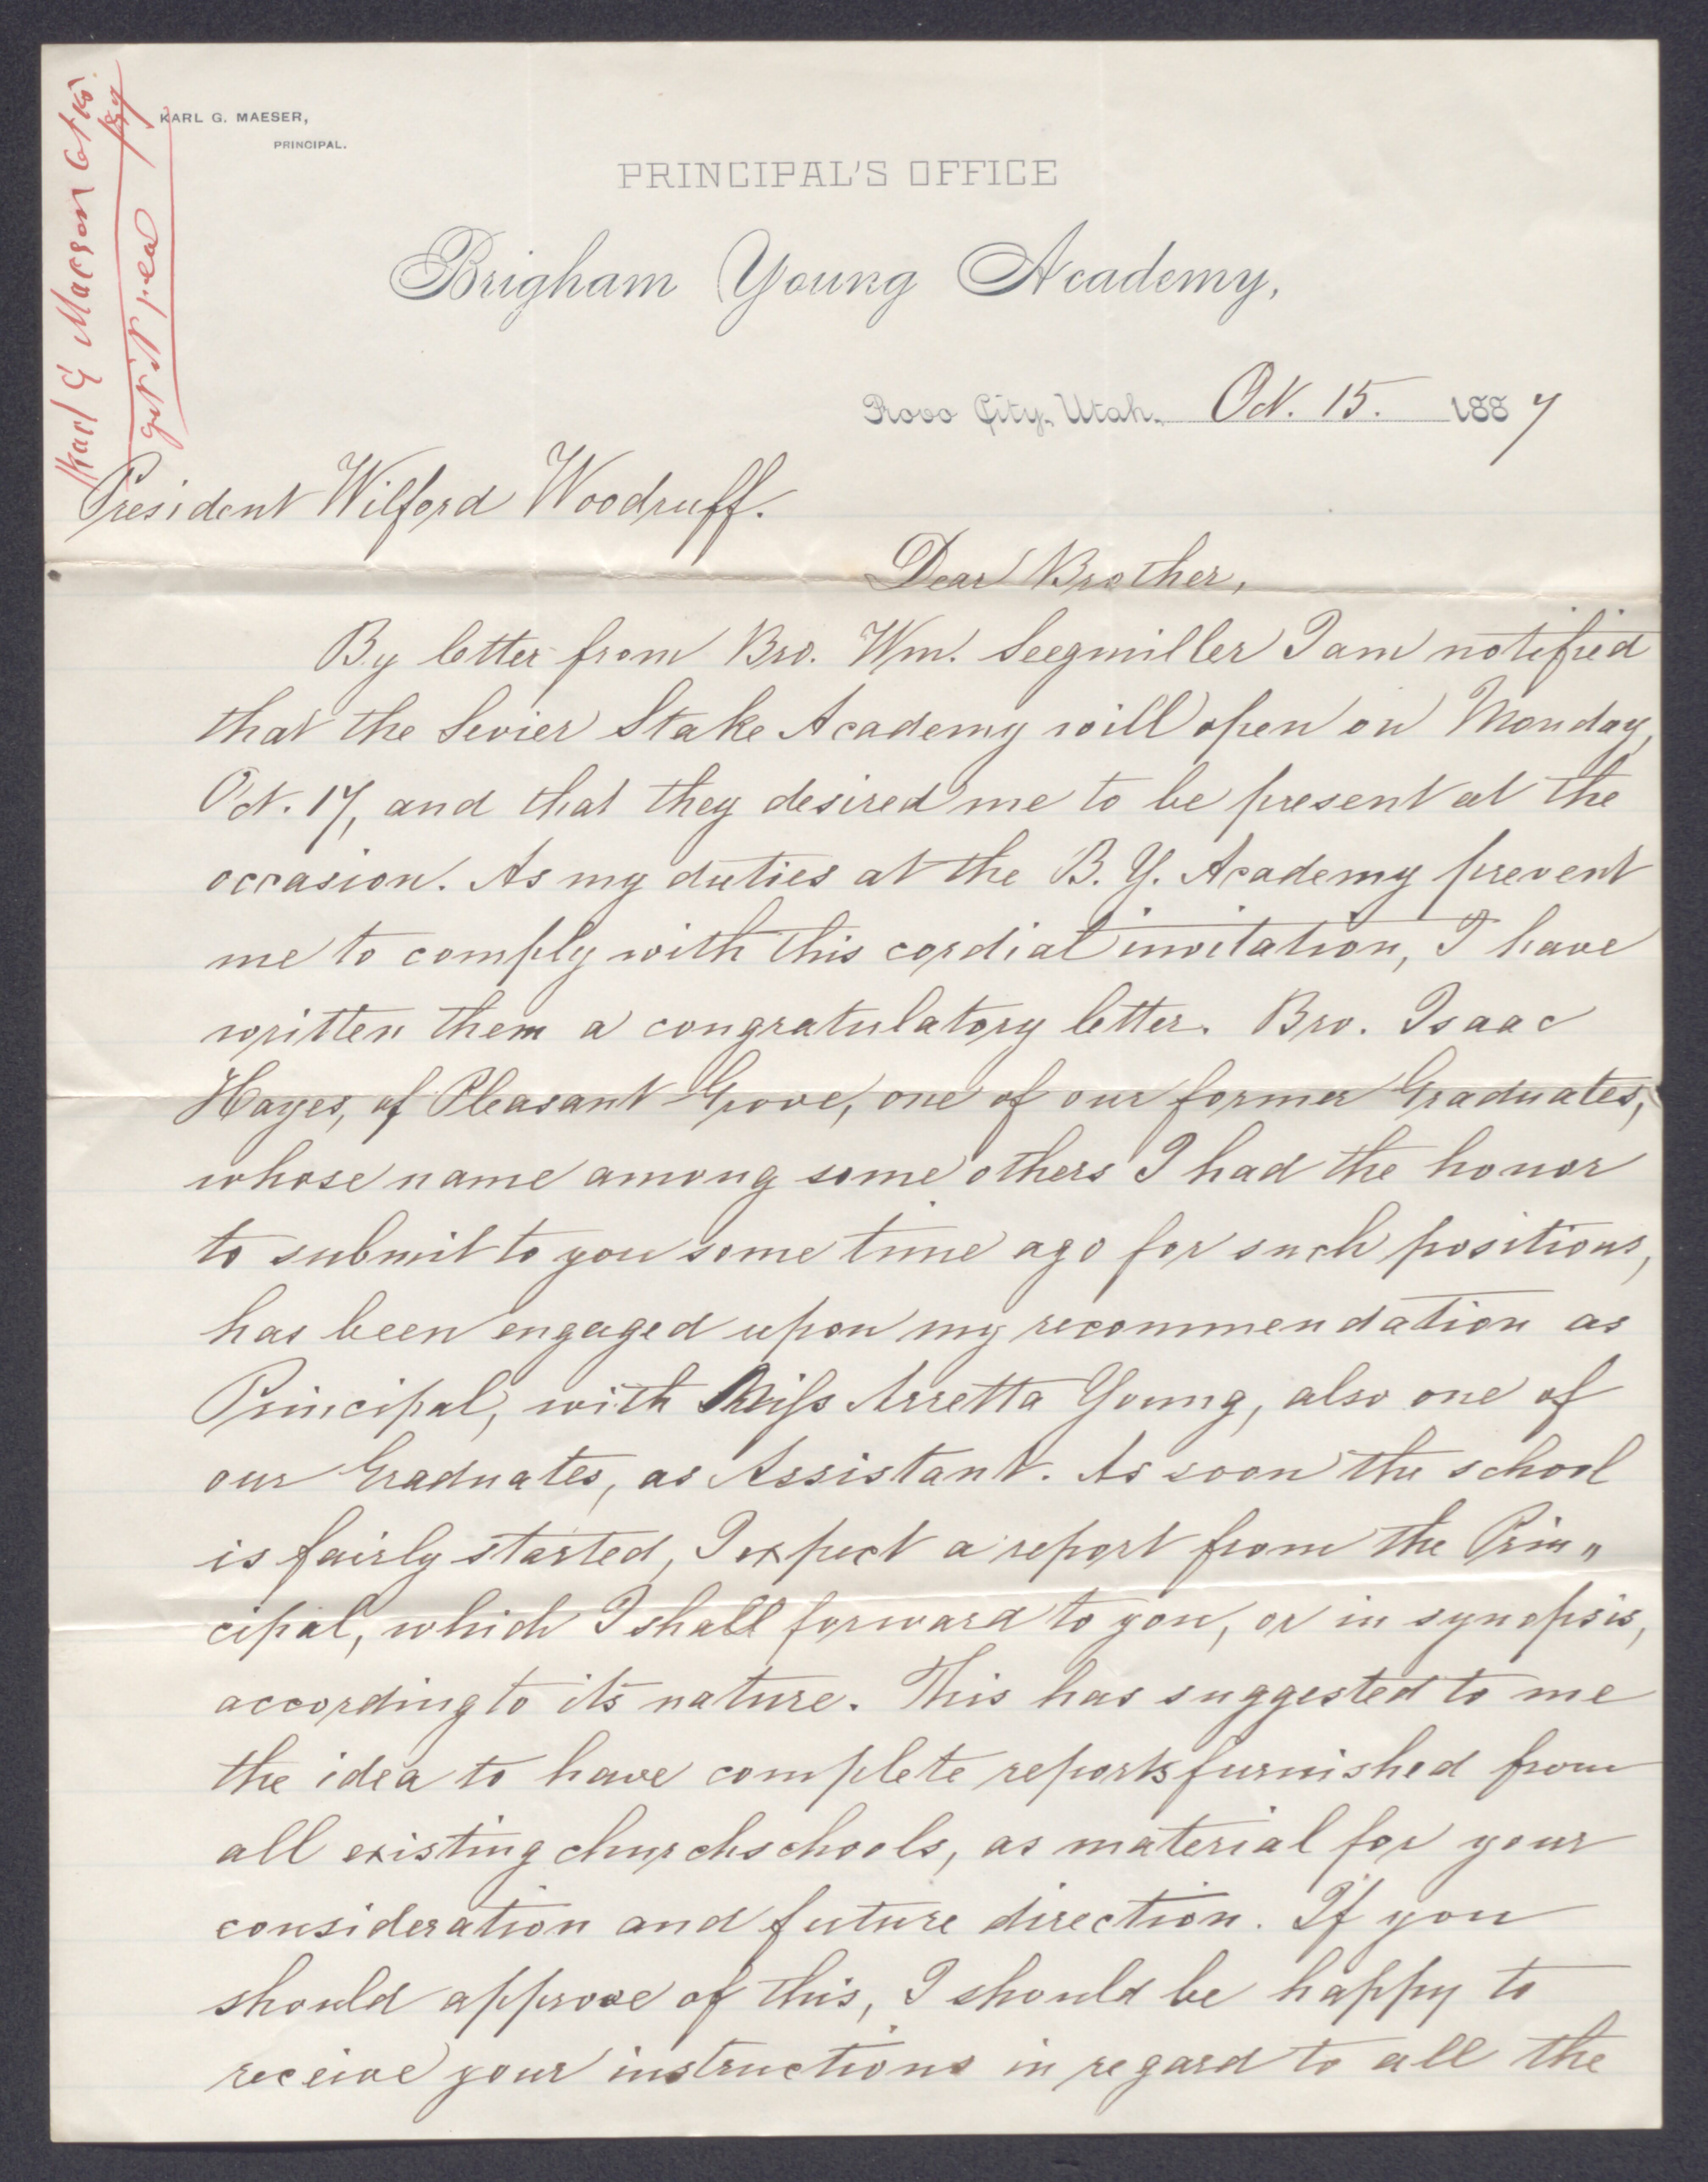 Karl G Maeser Oct 15.
KARL G. MAESER,
PRINCIPAL.
PRINCIPAL'S OFFICE
Brigham Young Academy,
Provo City, Utah. Oct. 15. 1887
President Wilford Woodruff.
Dear Brother,
By letter from Bro. Wm. Seegmiller I am notified
that the Sevier Stake Academy will open on Monday,
Oct. 17, and that they desired me to be present at the
occasion. As my duties at the B. Y. Academy prevent
me to comply with this cordial invitation, I have
written them a congratulatory letter. Bro. Isaac
Hayes, of Pleasant Grove, one of our former Graduates,
whose name among some others I had the honor
to submit to you some time ago for such positions,
has been engaged upon my recommendation as
Principal, with Miss Arretta Young, also one of
our Graduates, as Assistant. As soon the school
is fairly started, I expect a report from the Prin„
cipal, which I shall forward to you, or in synopsis,
according to its nature. This has suggested to me
the idea to have complete reports furnished from
all existing churchschools, as material for your
consideration and future direction. If you
should approve of this, I should be happy to
receive your instructions in regard to all the